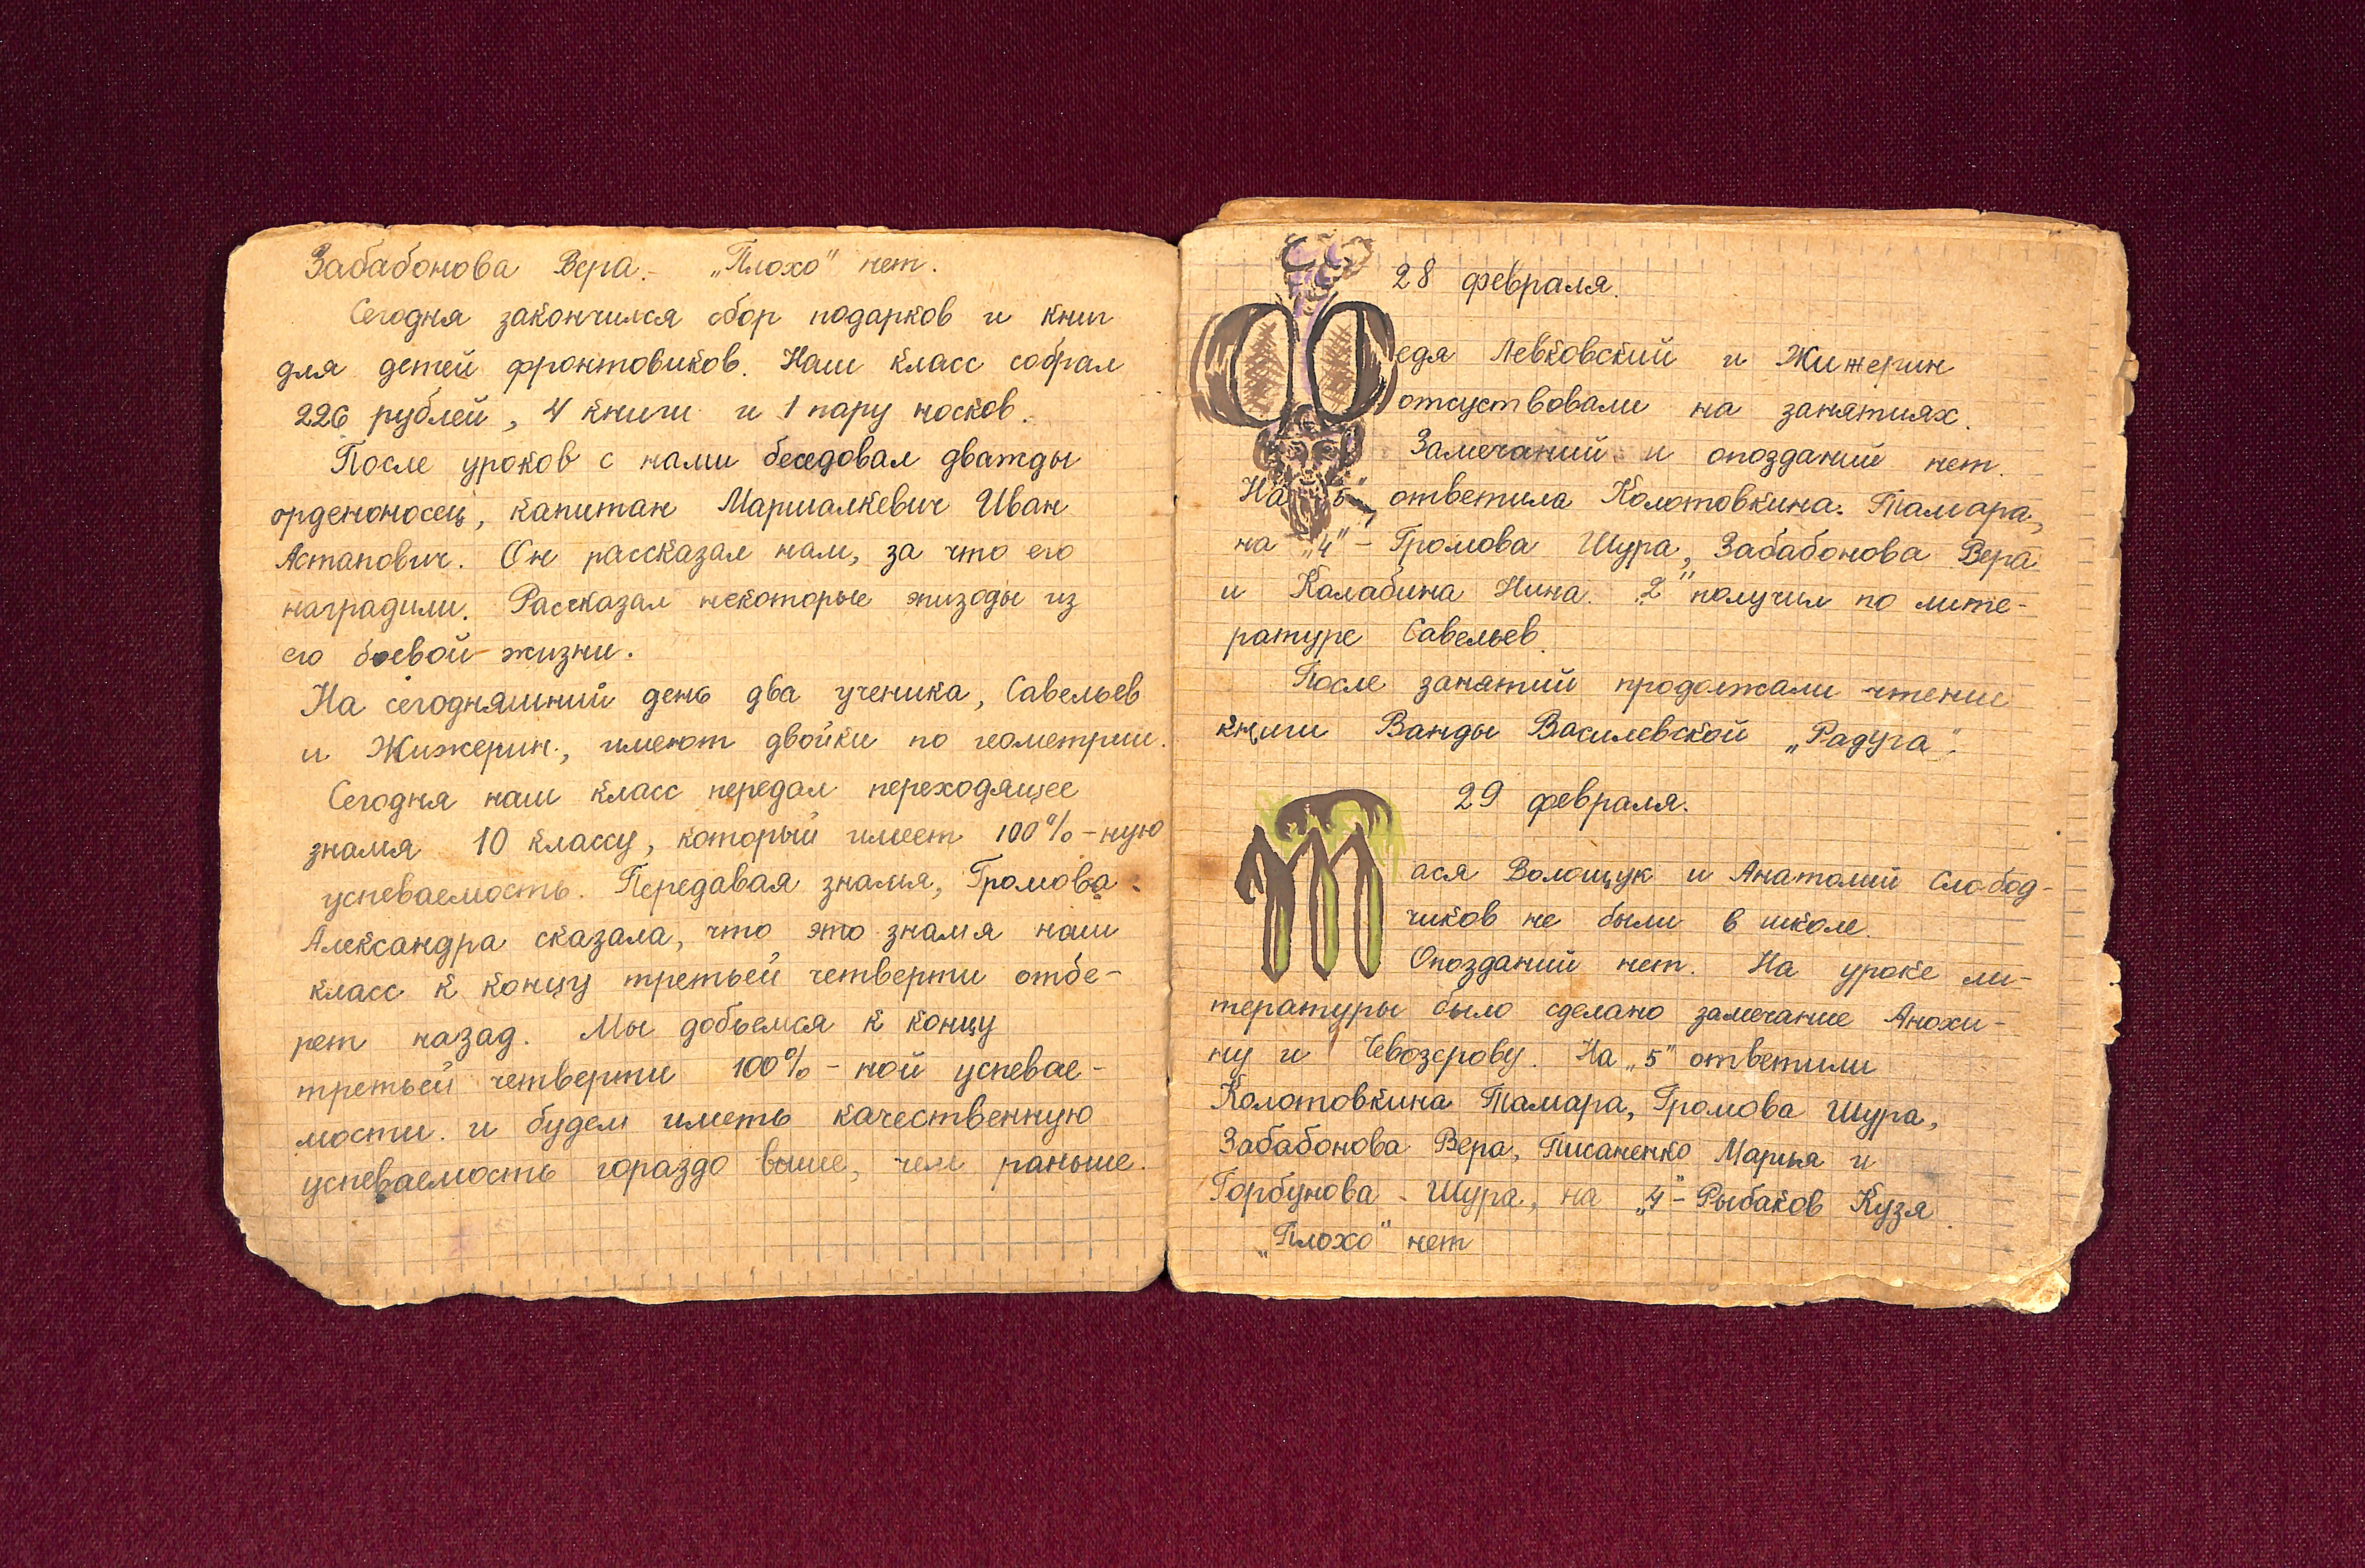 Забабонова Вера. - „Плохо" нет.
Сегодня закончился сбор подарков и книг
для детей фронтовиков. Наш класс собрал
226 рублей, 4 книги и 1 пару носков.
После уроков с нами беседовал дважды
орденоносец, капитан Маршалкевич Иван
Астапович. Он рассказал нам, за что его
наградили. Рассказал некоторые эпизоды из
его боевой жизни.
На сегодняшний день два ученика, Савельев
и Жижерин, имеют двойки по геометрии.
Сегодня наш класс передал переходящее
знамя 10 классу, который имеет 100%-ную
успеваемость. Передавая знамя, Громова
Александра сказала, что это знамя наш
класс к концу третьей четверти отбе-
рет назад. Мы добьемся к концу
третьей четверти 100% - ной успевае-
мости. и будем иметь качественную
успеваемость гораздо выше, чем раньше.
28 февраля.
Федя Левковский и Жижерин
отсуствовали на занятиях.
Замечаний и опозданий нет
На „5" ответила Колотовкина. Тамара,
на „4" - Громова Шура, Забабонова Вера
и Калабина Нина. „2" получил по лите-
ратуре Савельев.
После занятий продолжали чтение
книги Ванды Василевской „Радуга".
29 февраля.
Тася Волощук и Анатолий Слобод-
чиков не были в школе.
Опозданий нет. На уроке ли-
тературы было сделано замечание Анохи-
ну и Чевозерову. На „5" ответили
Колотовкина Тамара, Громова Шура,
Забабонова Вера, Писаненко Мария и
Горбунова Шура, на „4" - Рыбаков Кузя.
„Плохо" нет